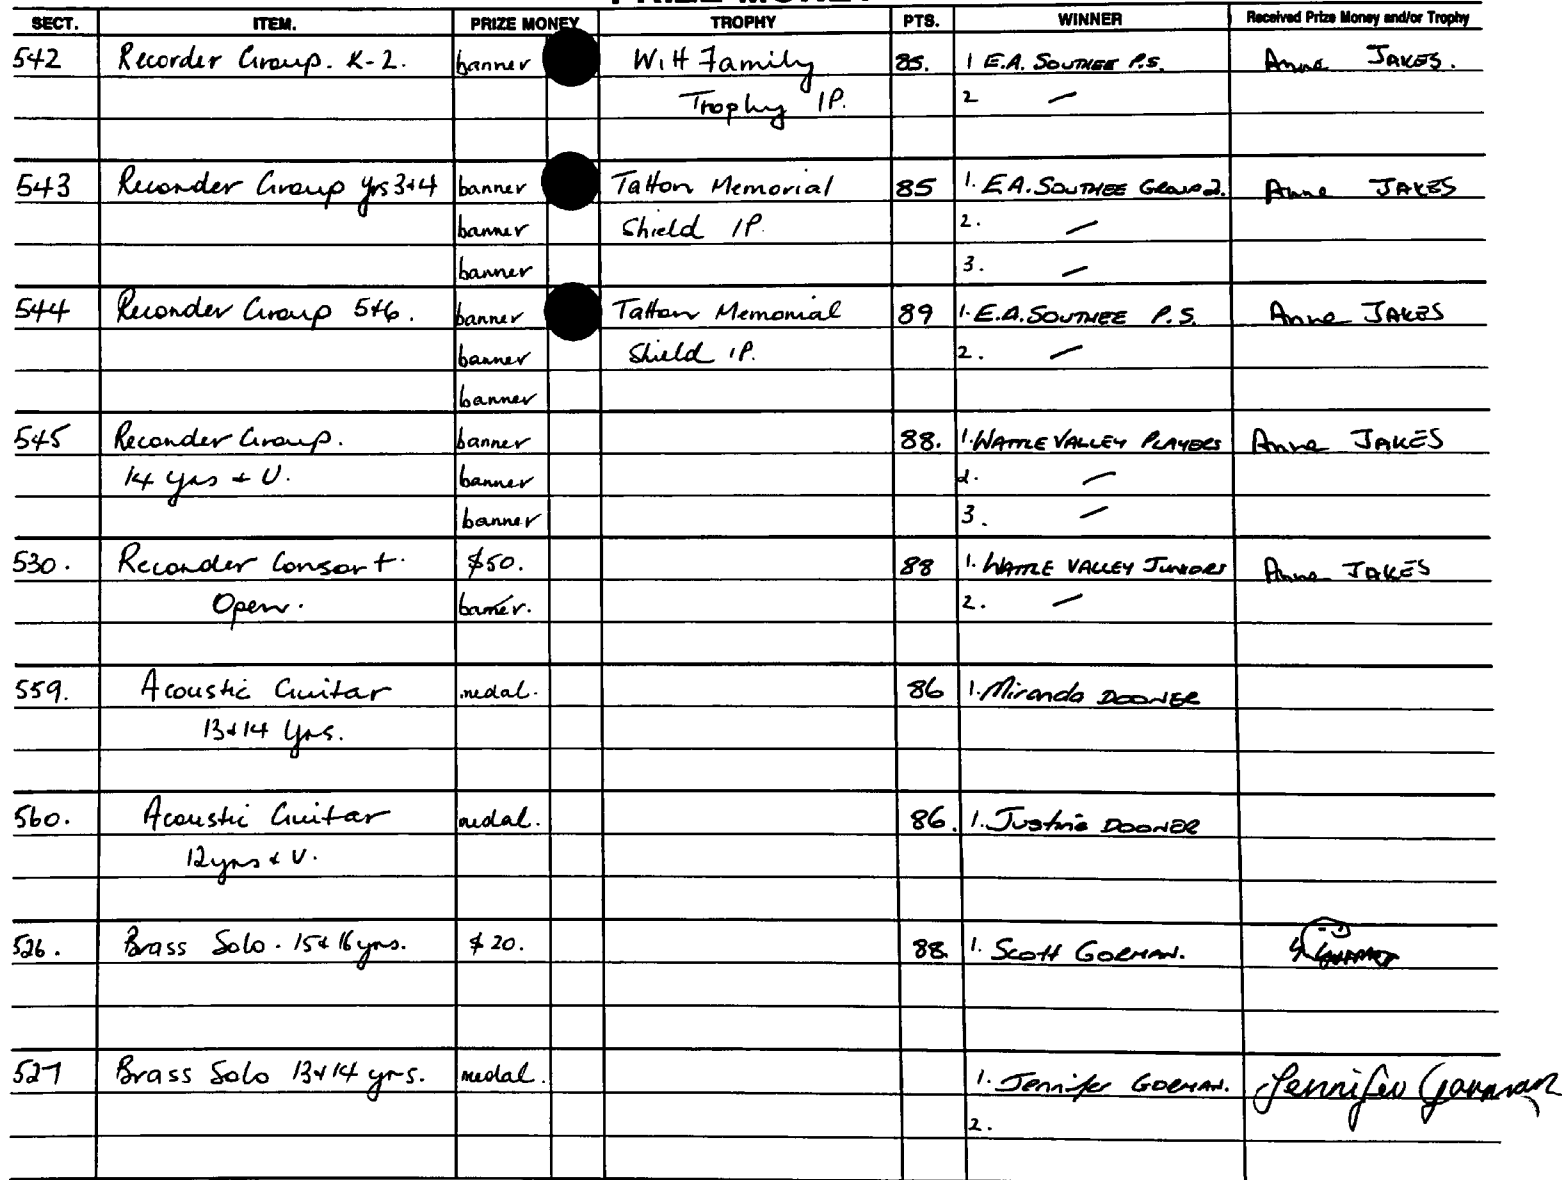 PRIZE MONEY
SECT. ITEM. PRIZE MONEY TROPHY PTS. WINNER Received Prize Money and/or Trophy
542 Recorder Group. K-2. banner Witt Family 85. 1 E.A. SOUTHEE P.S. Anne JAKES.
Trophy 1P. 2 —
543 Recorder Group yrs 3+4 banner Tatton Memorial 85 1. E.A. SOUTHEE Group 2. Anne JAKES
banner Shield 1P. 2. —
banner 3. —
544 Recorder Group 5+6. banner Tatton Memorial 89 1. E.A. SOUTHEE P.S. Anne JAKES
banner Shield 1P. 2. —
banner
545 Recorder Group. banner 88. 1. WATTLE VALLEY PLAYERS Anne JAKES
14 yrs + U. banner 2. —
banner 3. —
530. Recorder Consort. $50. 88 1. WATTLE VALLEY JUNIORS Anne JAKES
Open. banner. 2. —
559. Acoustic Guitar medal. 86 1. Miranda DOONER
13+14 Yrs.
560. Acoustic Guitar medal. 86. 1. Justine DOONER
12 yrs + U.
526. Brass Solo. 15+16 yrs. $20. 88. 1. Scott GORMAN.
527 Brass Solo 13+14 yrs. medal. 1. Jennifer GORMAN. Jennifer Gorman
2.